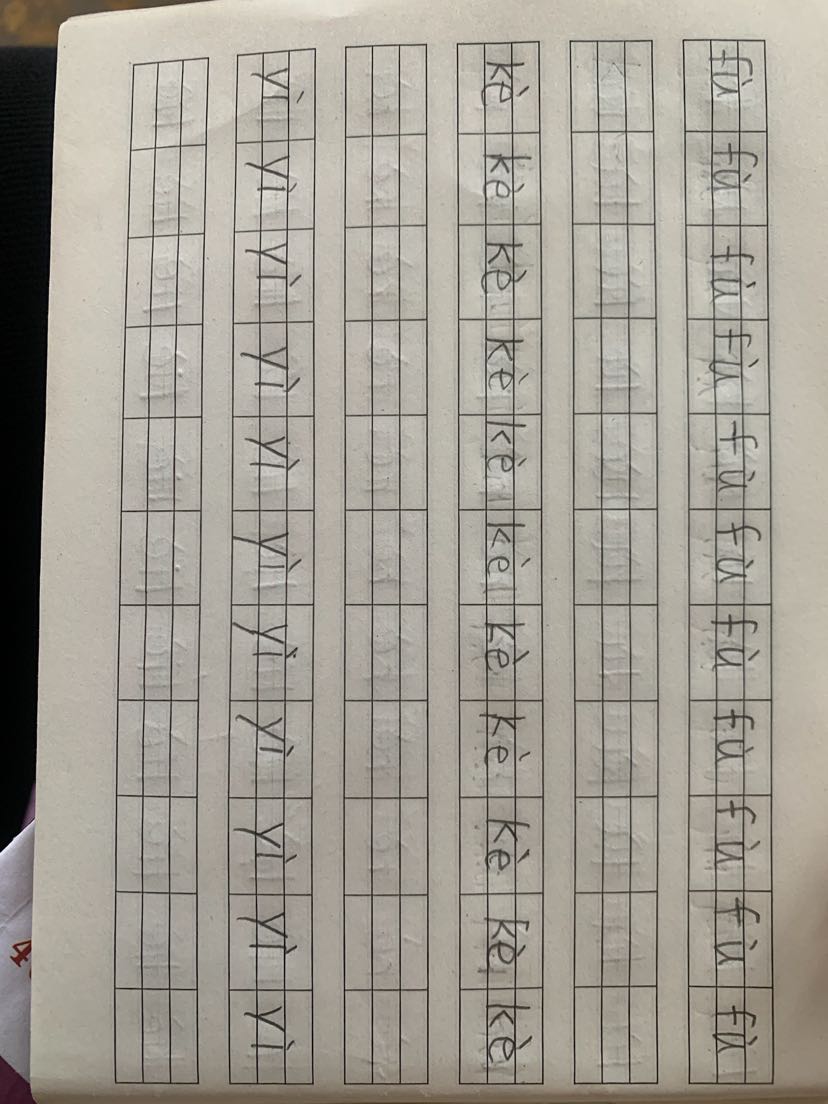 fù fù fù fù fù fù fù fù fù fù fù
kè kè kè kè kè kè kè kè kè kè kè
yì yì yì yì yì yì yì yì yì yì yì